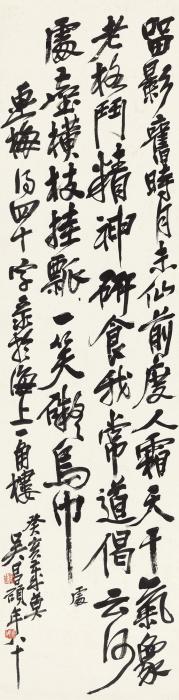 留影舊時月未仙前度人霜天干氣象
老格鬥精神研食我常道偈云何
處塵橫枝挂瓢一笑礙烏巾
處
畫梅得四十字录於海上一角樓
癸亥歲莫
吳昌碩年八十